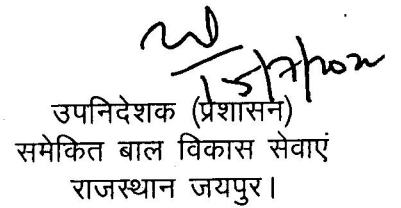 15/7/2022
उपनिदेशक (प्रेशासन)
समेकित बाल विकास सेवाएं
राजस्थान जयपुर।